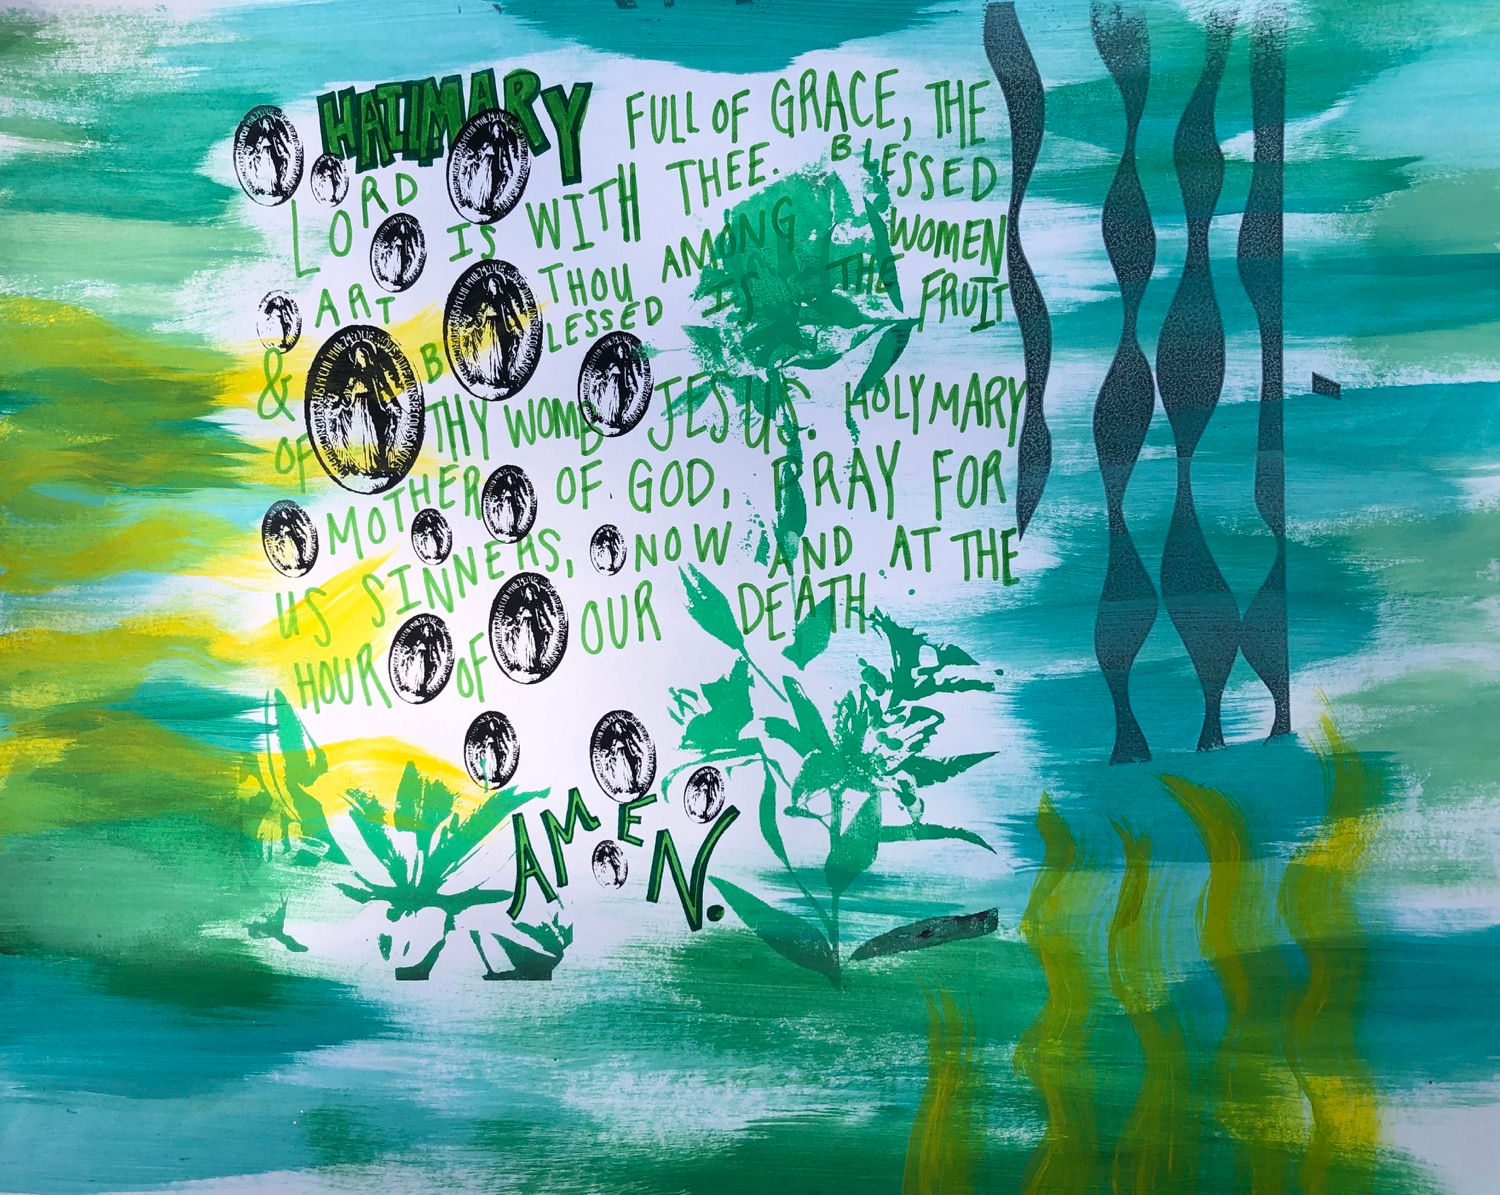 HAILMARY FULL OF GRACE, THE
LORD IS WITH THEE. BLESSED
ART THOU AMONG WOMEN
& BLESSED IS THE FRUIT
OF THY WOMB JESUS. HOLY MARY
MOTHER OF GOD, PRAY FOR
US SINNERS, NOW AND AT THE
HOUR OF OUR DEATH.
AMEN.